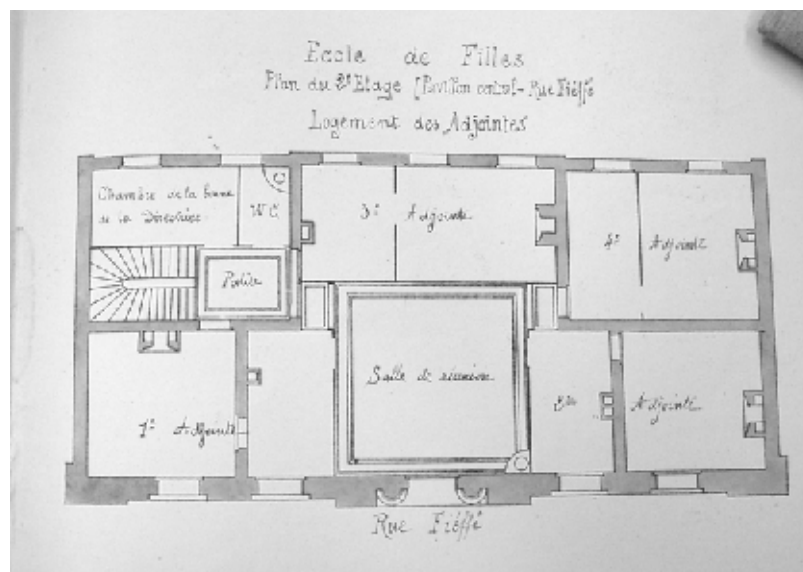 Ecole de Filles
Plan du 2e Etage [Pavillon central - Rue Fiéffé
Logement des Adjointes
Chambre de la bonne
de la Directrice
W C
3e Adjointe
4e Adjointe
Palier
Salle de réunion
1e Adjointe
2me Adjointe
Rue Fiéffé